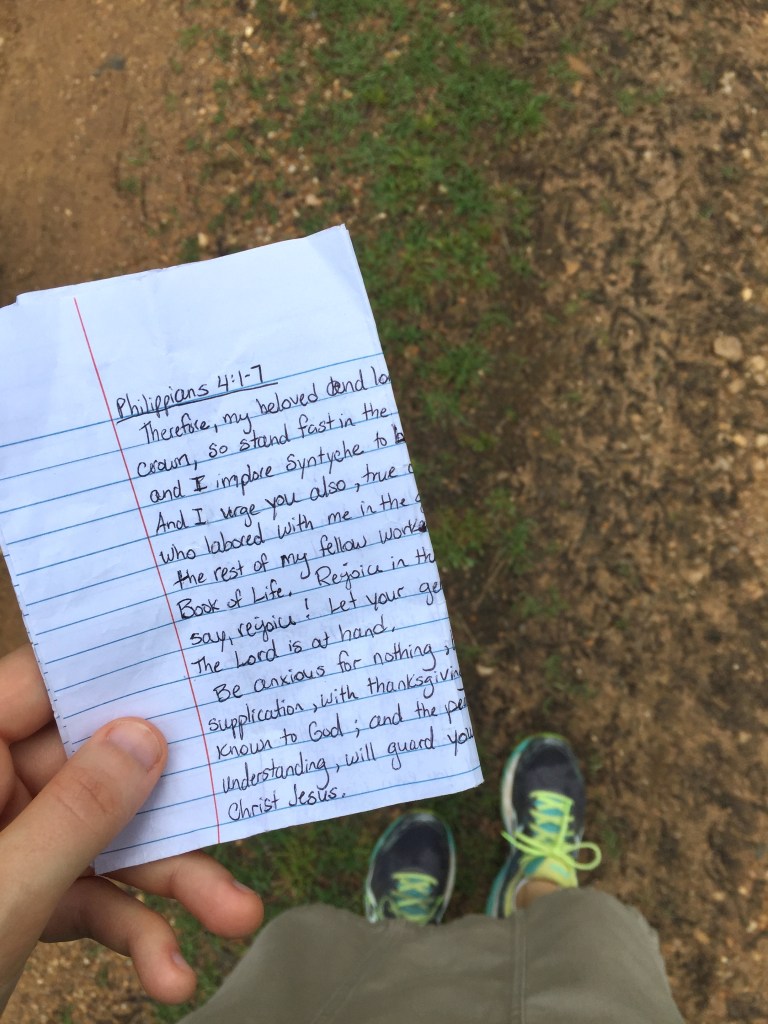 Philippians 4:1-7
Therefore, my beloved and
crown, so stand fast in the
and I implore Syntyche to
And I urge you also, true
who labored with me in the
the rest of my fellow
Book of Life. Rejoice in
say, rejoice! Let your
The Lord is at hand.
Be anxious for nothing,
supplication, with
known to God; and the
understanding, will guard
Christ Jesus.